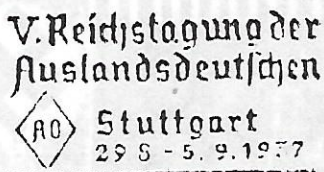 V. Reichstagung der
Auslandsdeutschen
AO Stuttgart
29 8 - 5. 9. 1937